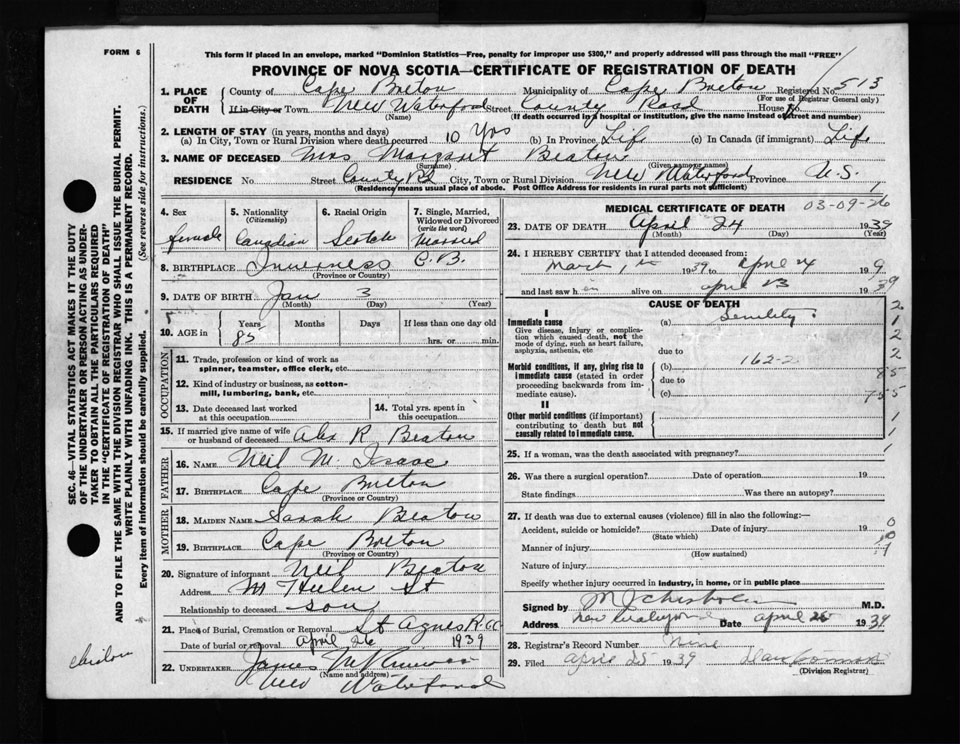 FORM 6
This form if placed in an envelope, marked "Dominion Statistics—Free, penalty for improper use $300," and properly addressed will pass through the mail "FREE"
PROVINCE OF NOVA SCOTIA—CERTIFICATE OF REGISTRATION OF DEATH
SEC. 46—VITAL STATISTICS ACT MAKES IT THE DUTY
OF THE UNDERTAKER OR PERSON ACTING AS UNDER-
TAKER TO OBTAIN ALL THE PARTICULARS REQUIRED
IN THE "CERTIFICATE OF REGISTRATION OF DEATH"
AND TO FILE THE SAME WITH THE DIVISION REGISTRAR WHO SHALL ISSUE THE BURIAL PERMIT.
WRITE PLAINLY WITH UNFADING INK. THIS IS A PERMANENT RECORD.
Every item of information should be carefully supplied. (See reverse side for instructions.)
1. PLACE OF DEATH County of Cape Breton Municipality of Cape Breton Registered No. 513
(For use of Registrar General only)
If in City or Town New Waterford Street County Road House No.
(Name) (If death occurred in a hospital or institution, give the name instead of street and number)
2. LENGTH OF STAY (in years, months and days)
(a) In City, Town or Rural Division where death occurred 10 Yrs (b) In Province Life (c) In Canada (if immigrant) Life
3. NAME OF DECEASED Mrs Margaret Beaton
(Surname) (Given name or names)
RESIDENCE No. Street County Rd City, Town or Rural Division New Waterford Province N.S.
(Residence means usual place of abode. Post Office Address for residents in rural parts not sufficient)
4. Sex
female
5. Nationality
(Citizenship)
Canadian
6. Racial Origin
Scotch
7. Single, Married,
Widowed or Divorced
(write the word)
Married
8. BIRTHPLACE Inverness C.B.
(Province or Country)
9. DATE OF BIRTH Jan 3
(Month) (Day) (Year)
10. AGE in Years Months Days If less than one day old
85 hrs. or min.
OCCUPATION
11. Trade, profession or kind of work as
spinner, teamster, office clerk, etc.
12. Kind of industry or business, as cotton-
mill, lumbering, bank, etc.
13. Date deceased last worked
at this occupation
14. Total yrs. spent in
this occupation
15. If married give name of wife
or husband of deceased Alex R Beaton
FATHER
16. NAME Neil M. Isaac
17. BIRTHPLACE Cape Breton
(Province or Country)
MOTHER
18. MAIDEN NAME Sarah Beaton
19. BIRTHPLACE Cape Breton
(Province or Country)
20. Signature of informant Neil Beaton
Address St
Relationship to deceased son
21. Place of Burial, Cremation or Removal St Agnes
Date of burial or removal April 26 1939
22. UNDERTAKER James
(Name and address)
New Waterford
MEDICAL CERTIFICATE OF DEATH
03-09-26
23. DATE OF DEATH April 24 1939
(Month) (Day) (Year)
24. I HEREBY CERTIFY that I attended deceased from:
March 1 1939 to April 24 1939
and last saw h er alive on April 23 1939
CAUSE OF DEATH
I
Immediate cause
Give disease, injury or complica-
tion which caused death, not the
mode of dying, such as heart failure,
asphyxia, asthenia, etc
(a) Senility
due to
Morbid conditions, if any, giving rise to
immediate cause (stated in order
proceeding backwards from im-
mediate cause).
(b) 162-2
due to
(c)
II
Other morbid conditions (if important)
contributing to death but not
causally related to immediate cause.
25. If a woman, was the death associated with pregnancy?
26. Was there a surgical operation? Date of operation 19
State findings Was there an autopsy?
27. If death was due to external causes (violence) fill in also the following:—
Accident, suicide or homicide? Date of injury 19
(State which)
Manner of injury
(How sustained)
Nature of injury
Specify whether injury occurred in industry, in home, or in public place
Signed by M J Chisholm M.D.
Address New Waterford Date April 25 1939
28. Registrar's Record Number Nine
29. Filed April 25 1939
(Division Registrar)